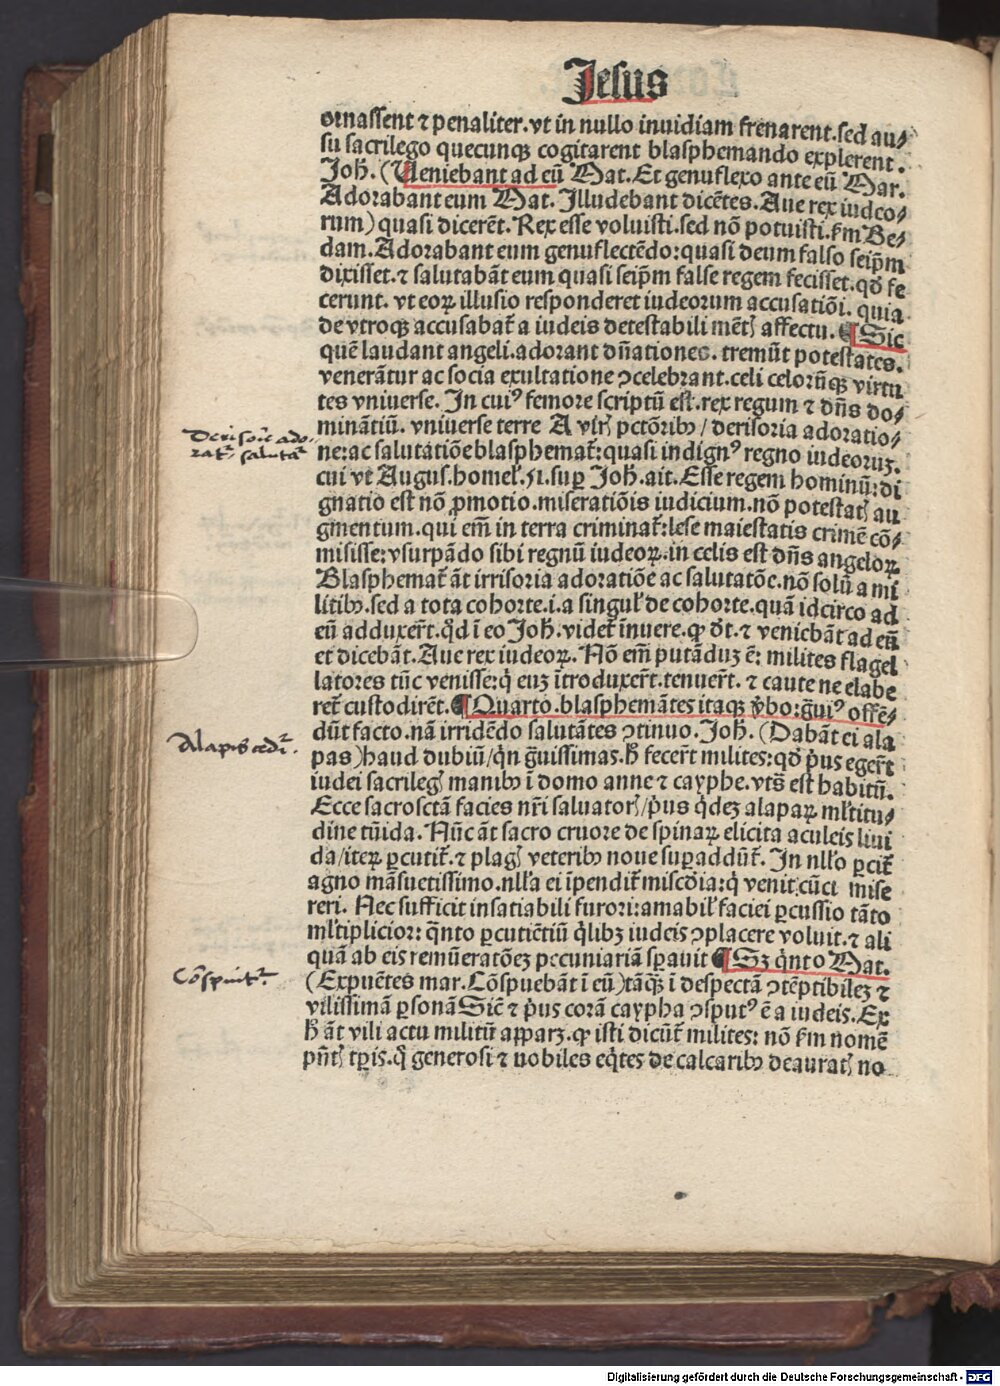 Jesus
ornassent ⁊ penaliter. vt in nullo inuidiam frenarent. sed au⸗
su sacrilego quecunqꝫ cogitarent blasphemando explerent.
Joh̄. (Ueniebant ad eū Mat. Et genuflexo ante eū Mar.
Adorabant eum Mat. Illudebant dicētes. Aue rex iudeo⸗
rum) quasi dicerēt. Rex esse voluisti. sed nō potuisti. fm Be⸗
dam. Adorabant eum genuflectēdo: quasi deum falso seip̄m
dixisset. ⁊ salutabāt eum quasi seip̄m false regem fecisset. qd̄ fe
cerunt. vt eoꝝ illusio responderet iudeorum accusatiōi. quia
de vtroqꝫ accusabat̄ a iudeis detestabili mēt affectu. ¶ Sic
quē laudant angeli. adorant dn̄ationes. tremūt potestates.
venerātur ac socia exultatione ꝯcelebrant. celi celorūqꝫ virtu
tes vniuerse. In cuiꝰ femore scriptū est. rex regum ⁊ dn̄s do⸗
minātiū. vniuerse terre A pctōribꝰ / derisoria adoratio⸗
Derisorie ado⸗
rat̄ salutat̄
ne: ac salutatiōe blasphemat̄: quasi indignꝰ regno iudeoruꝫ.
cui vt Augus. homel. 51. sup̄ Joh̄. ait. Esse regem hominū: di
gnatio est nō ꝓmotio. miseratiōis iudicium. nō potestat au
gmentum. qui em̄ in terra criminat̄: lese maiestatis crimē cō⸗
misisse: vsurpādo sibi regnū iudeoꝝ. in celis est dn̄s angeloꝝ
Blasphemat̄ āt irrisoria adoratiōe ac salutatōe. nō solū a mi
litibꝰ. sed a tota cohorte. i. a singul̄ de cohorte. quā idcirco ad
eū adduxer̄t. qd̄ ī eo Joh̄. videt̄ īnuere. ꝙ d̄t. ⁊ veniebāt ad eū
et dicebāt. Aue rex iudeoꝝ. Nō em̄ putāduꝫ ē: milites flagel
latores tūc venisse: q̇ euꝫ ītroduxer̄t. tenuer̄t. ⁊ caute ne elabe
ret̄ custodirēt. ¶ Quarto. blasphemātes itaqꝫ v̄bo: g̃uiꝰ offē⸗
dūt facto. nā irridēdo salutātes ꝯtinuo. Joh̄. (Dabāt ei ala
Alapis cedit̄.
pas) haud dubiū / qn̄ g̃uissimas. h̄ fecer̄t milites: qd̄ p̄us eger̄t
iudei sacrileg manibꝰ ī domo anne ⁊ cayphe. vts̄ est habitū.
Ecce sacrosctā facies nr̄i saluator / p̄us q̇deꝫ alapaꝝ ml̄titu⸗
dine tūida. Nūc āt sacro cruore de spinaꝝ elicita aculeis liui
da / iteꝝ ꝑcutit̄. ⁊ plag veteribꝰ noue suꝑaddūt̄. In nll̄o ꝑcit̄
agno māsuetissimo. nll̄a ei īpendit̄ miscd̄ia: q̇ venit cūci mise
reri. Nec sufficit insatiabili furori: amabil̄ faciei ꝑcussio tāto
ml̄tiplicior: q̇nto ꝑcutiētiū q̇libꝫ iudeis ꝯplacere voluit. ⁊ ali
quā ab eis remūeratōeꝫ pecuniariā sꝑauit ¶ Sꝫ q̇nto Mat.
Cōspuit̄.
(Expuētes mar. Cōspuebāt ī eū) tāq̄ꝫ ī despectā ꝯtēptibileꝫ ⁊
vilissimā ꝑsonā Sic̄ ⁊ p̄us corā caypha ꝯsputꝰ ē a iudeis. Ex
h̄ āt vili actu militū apparꝫ. ꝙ isti dicūt̄ milites: nō fm nomē
pn̄t tp̄is. q̇ generosi ⁊ nobiles eq̇tes de calcaribꝰ deaurat no
Digitalisierung gefördert durch die Deutsche Forschungsgemeinschaft - DFG